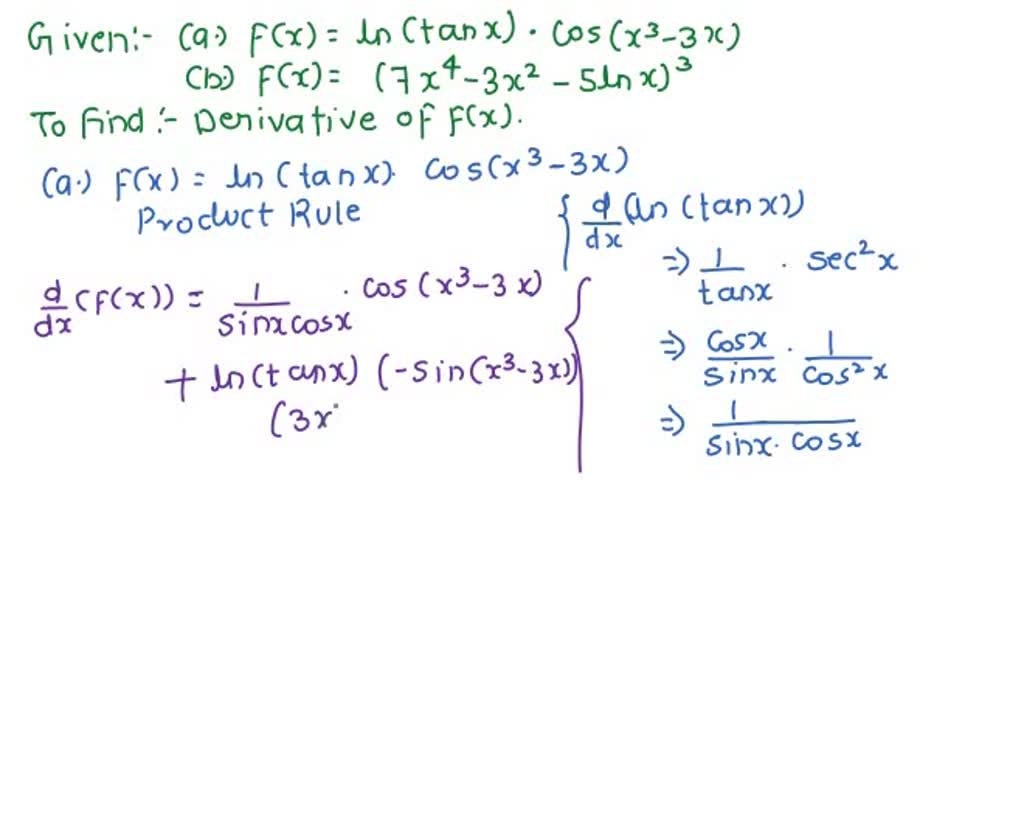 Given:- (a.) F(x) = ln(tanx) · cos(x³-3x)
(b.) F(x) = (7x⁴-3x²-5lnx)³
To Find :- Derivative of F(x).
(a.) F(x) = ln(tanx). cos(x³-3x)
Product Rule
{ d/dx (ln(tanx))
=> 1/tanx · sec²x
=> cosx/sinx · 1/cos²x
=> 1/sinx. cosx
d/dx (F(x)) = 1/sinxcosx · cos(x³-3x)
+ ln(tanx) (-sin(x³-3x))
(3x